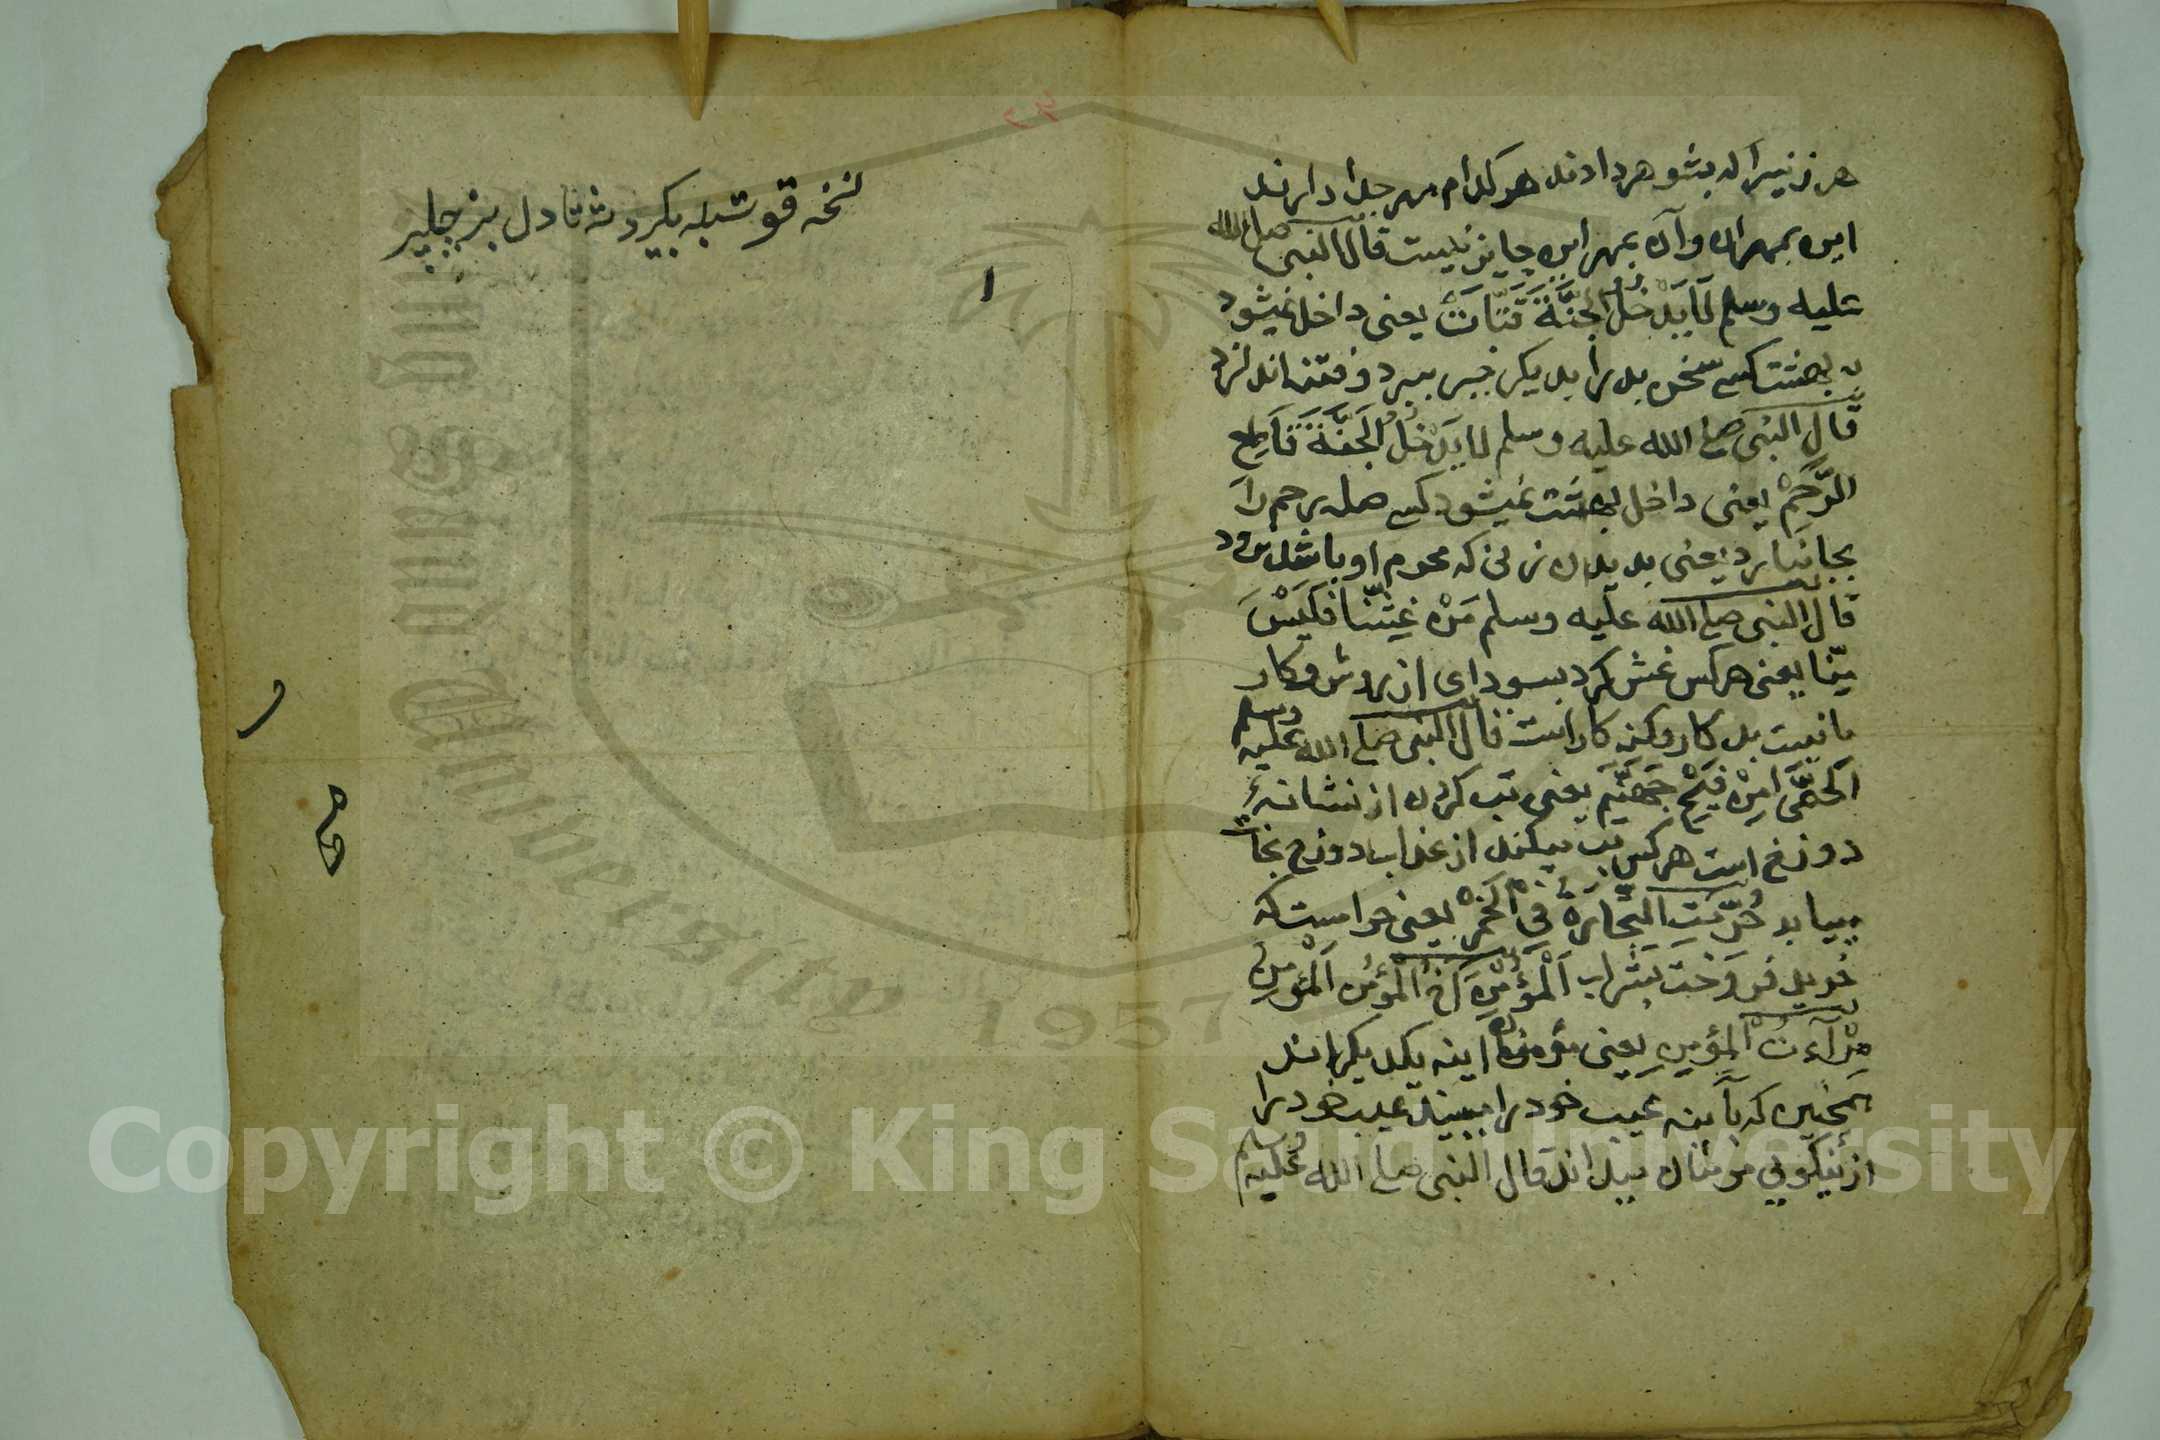 هر زنیرا که بشوهر دادند هر کدام مهر جدا دارند
این بمهر ان و آن بمهر این جایز نیست قال النبی صلی الله
علیه وسلم لَا یَدْخُلُ الْجَنَّةَ قَتَّاتٌ یعنی داخل نمیشود
به بهشت کسے سخن بد را بدیکر خبر ببرد و فتنه اندازد
قَالَ النبی صلی الله علیه وسلم لا یَدْخُلُ الْجَنَّةَ قَاطِع
الرَّحِمْ یعنی داخل بهشت نمیشود کسے صله رحم را
بجا نیارد یعنی بدیدن زنی که محرم او باشد
قال النبی صلی الله علیه وسلم مَنْ غَشَّنَا فَلَیْسَ
مِنّا یعنی هرکس غش کرد بسودای از روش و کار
ما نیست بدکار و کنه کار است قال النبی صلی الله علیه وسلم
اَلْحُمَّی مِنْ فَیْحِ جَهَنَّمَ یعنی تب کردن از نشانهٔ
دوزخ است هرکس تب میکند از عذاب دوزخ نجات
مییابد حُرِّمَتِ التِّجَارَةُ فِی الْخَمْرِ یعنی حرامست که
خرید فروخت بشراب اَلْمُؤْمِنُ اَخُ الْمُؤْمِن اَلْمُؤْمِنُ
مِرْآءَتُ الْمُؤْمِنِ یعنی مؤمنان اینه یکدیکراند
همچنین که بآینه عیب خود را ببیند عیب خود را
از نیکویی مؤمنان میداند قال النبی صلی الله علیه وسلم
نخه قوشبله بکیرد
۱
۲۳
Copyright © King Saud University
King Saud University
1957